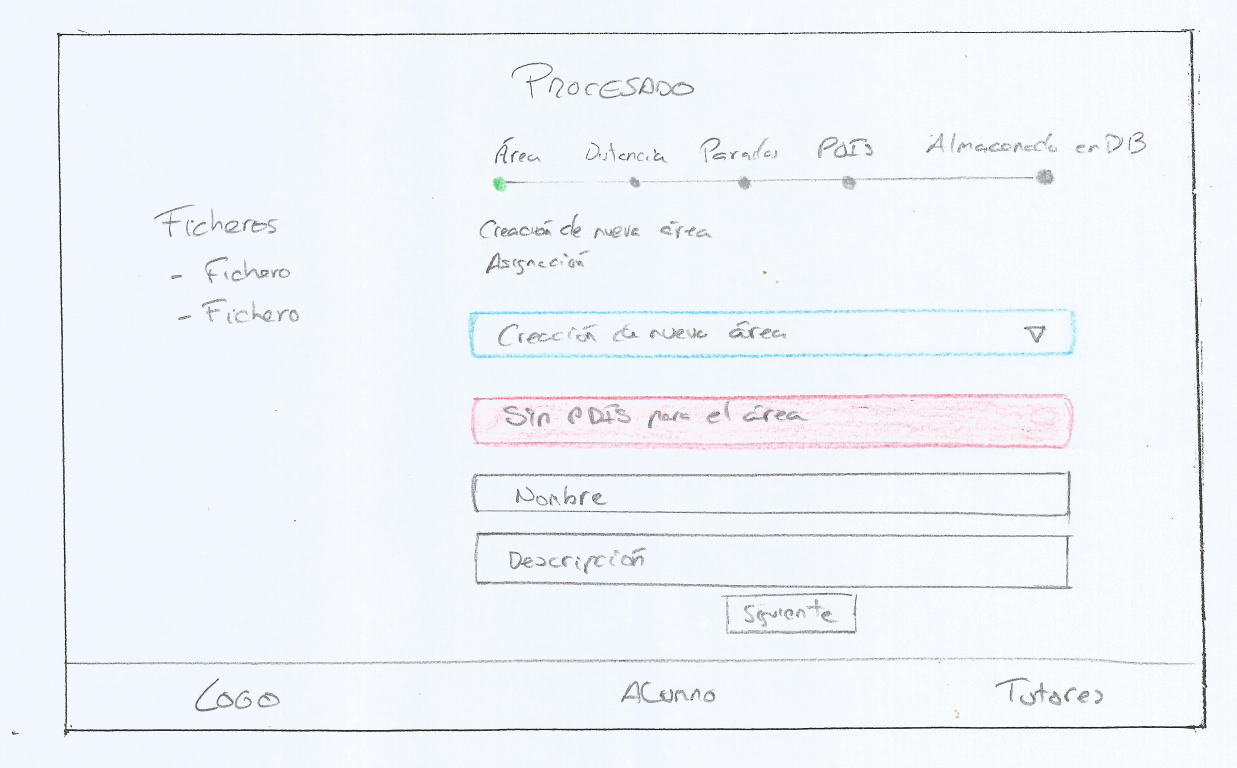 PROCESADO
Área Distancia Paradas PDIs Almacenado en DB
Ficheros
- Fichero
- Fichero
Creación de nueva área
Asignación
Creación de nueva área
Sin PDIS para el área
Nombre
Descripción
Siguiente
LOGO
Alumno
Tutores